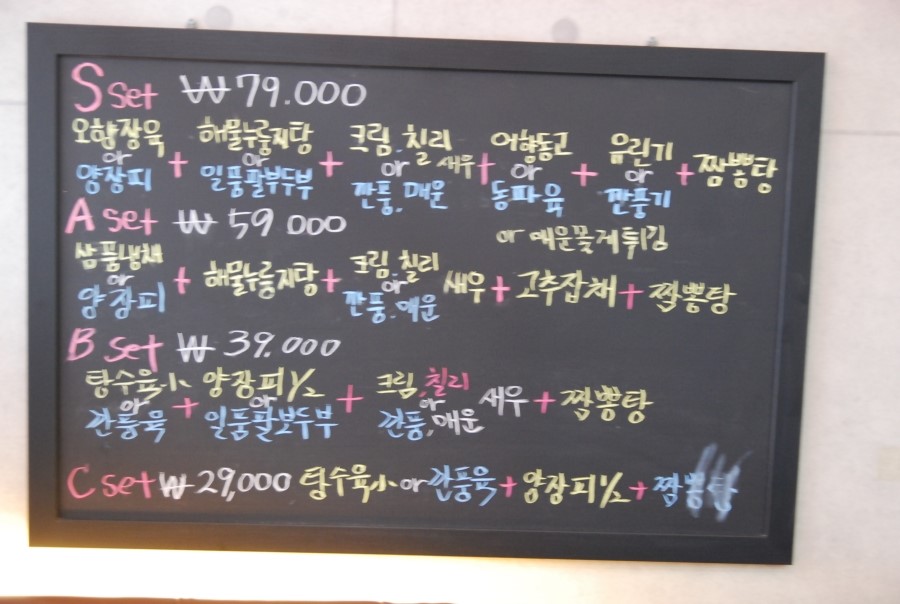 S set ₩79.000
오향장육 해물누룽지탕 크림, 칠리 어향동고 유린기
or + or + or 새우 + or + or + 짬뽕탕
양장피 일품팔보두부 깐풍, 매운 동파육 깐풍기
A set ₩59.000 or 매운꽃게튀김
삼품냉채 크림, 칠리
or + 해물누룽지탕 + or 새우 + 고추잡채 + 짬뽕탕
양장피 깐풍.매운
B set ₩39.000
탕수육小 양장피1/2 크림, 칠리
or + or + or 새우 + 짬뽕탕
깐풍육 일품팔보두부 깐풍, 매운
C set ₩29,000 탕수육小 or 깐풍육 + 양장피1/2 + 짬뽕